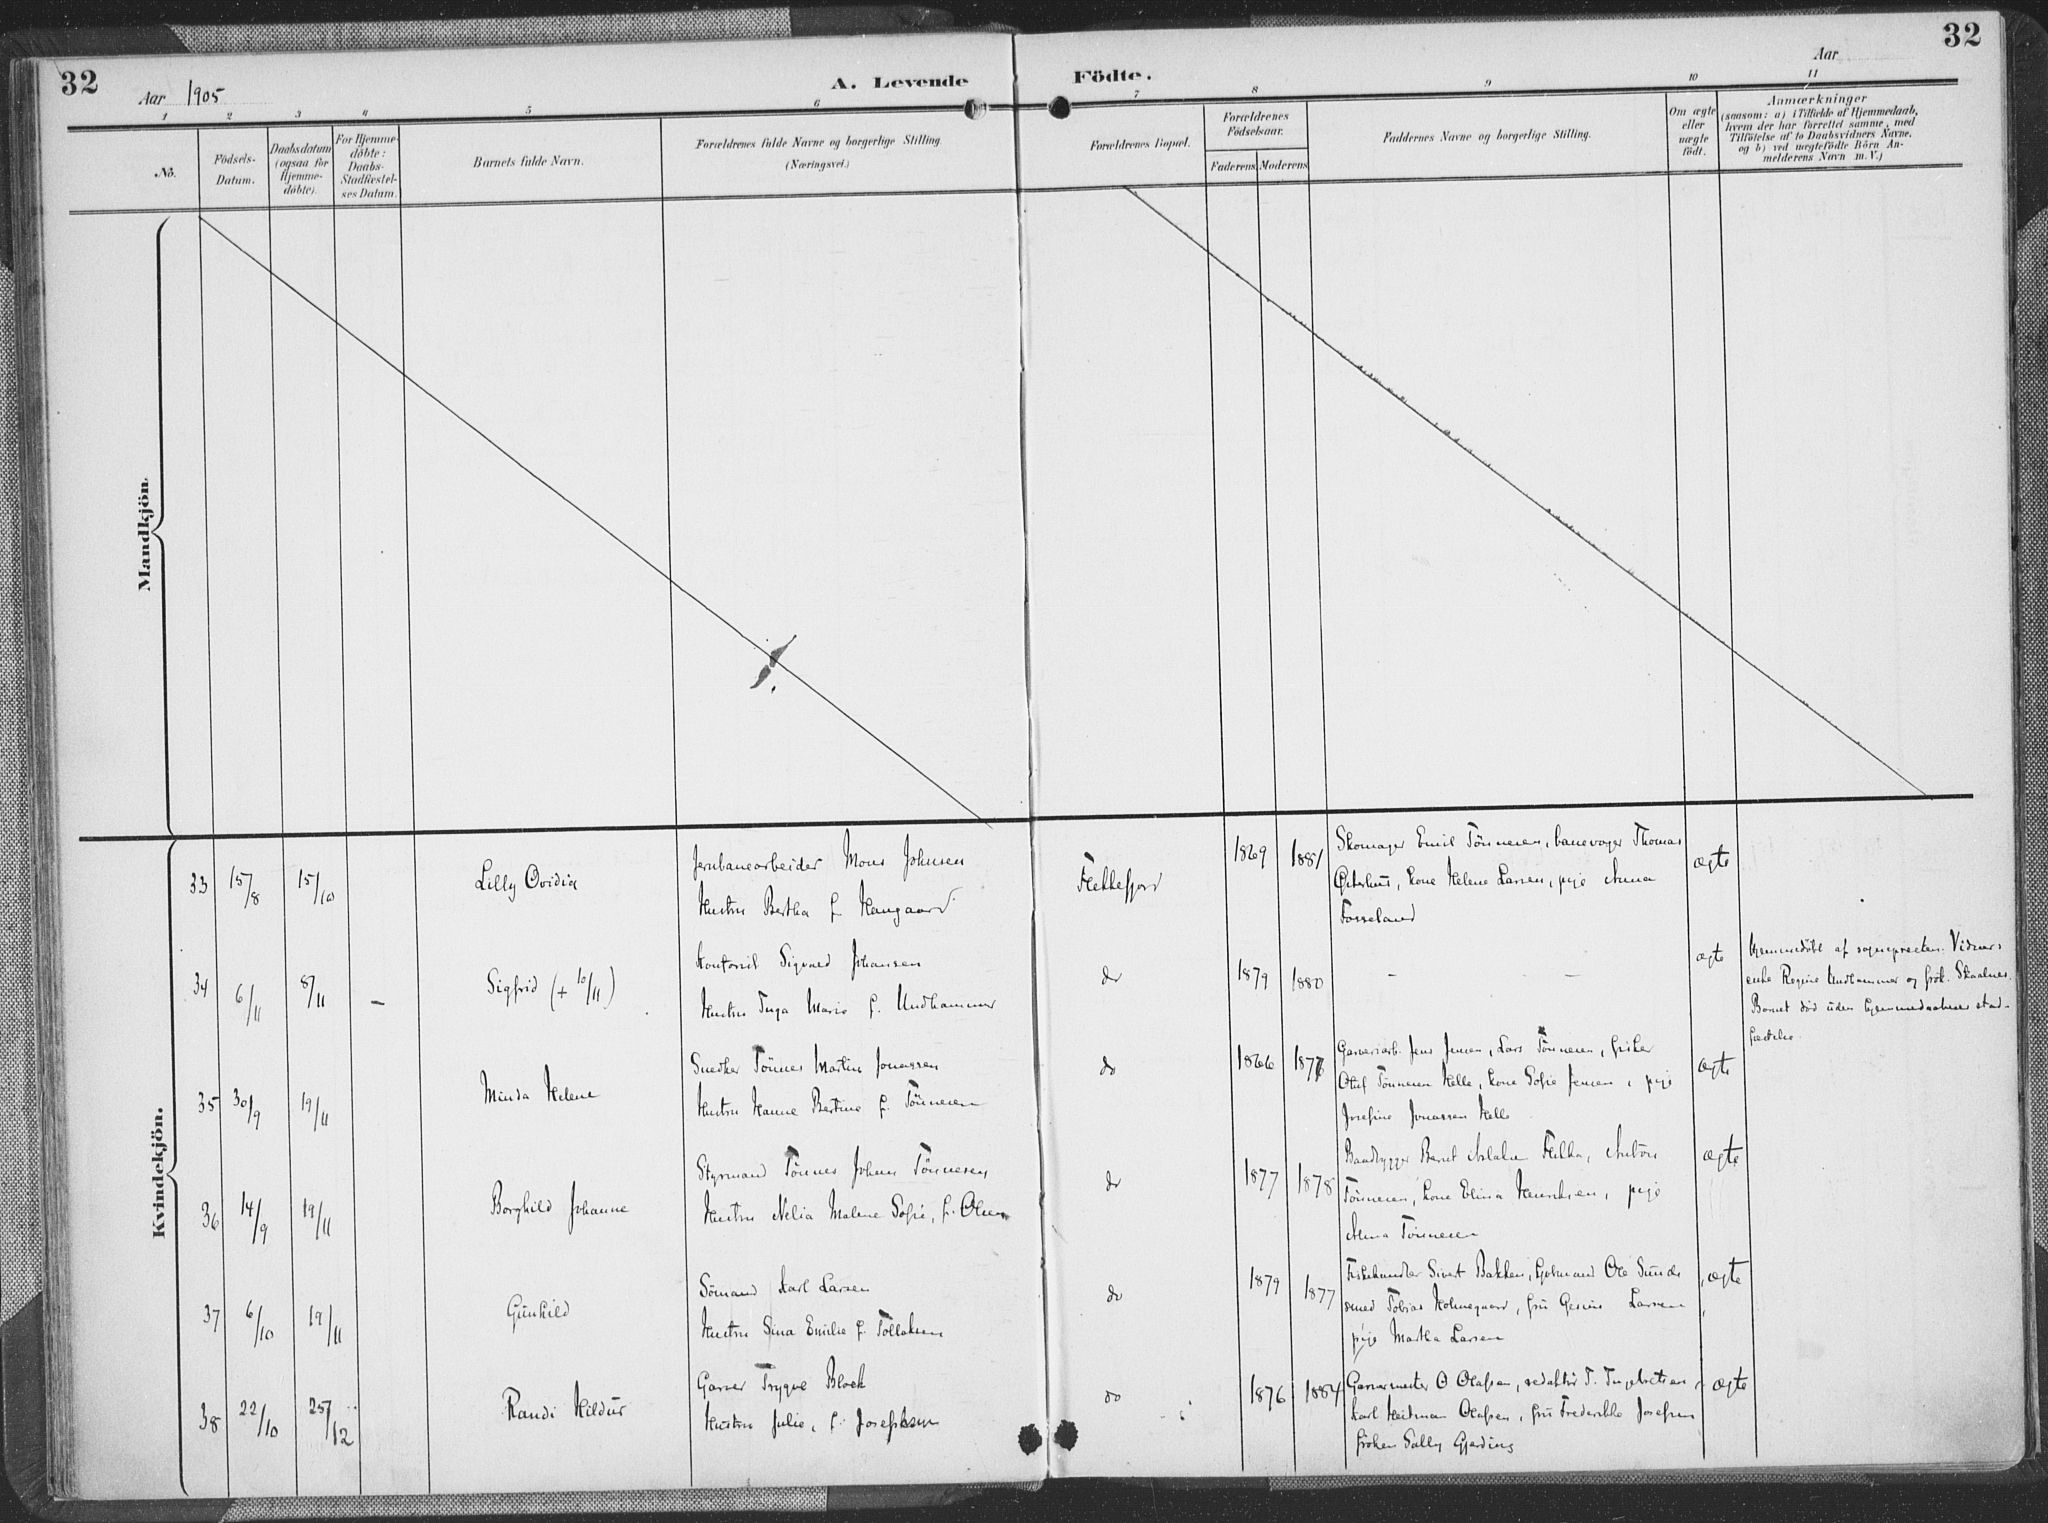 32
Aar 1905
A. Levende Födte.
Aar
32
1 2 3 4 5 6 7 8 9 10 11
No.
Födsels-
Datum.
Daabsdatum
(ogsaa for
Hjemme-
döbte).
For Hjemme-
döbte:
Daabs-
Stadfæstel-
ses Datum.
Barnets fulde Navn.
Forældrenes fulde Navne og borgerlige Stilling.
(Næringsvei.)
Forældrenes Bopæl.
Forældrenes
Födselsaar.
Faderens. Moderens.
Faddernes Navne og borgerlige Stilling.
Om ægte
eller
uægte
født.
Anmærkninger
(saasom: a) i Tilfælde af Hjemmedaab,
hvem der har forrettet samme, med
Tilföielse af to Daabsvidners Navne.
og b) ved uægtefödte Börn An-
melderens Navn m. V.)
Mandkjön.
Kvindekjön.
33 15/8 15/10
Lilly Ovidia
Jernbanearbeider Mons Johnsen
Hustru Bertha f. Haugaard
Flekkefjord
1869 1881
Skomager Emil Tönnesen, banevogter Thomas
Österhus, kone Helene Larsen, pige Anna
Fosseland
ægte
34 6/11 8/11 –
Sigfrid (+ 10/11)
Kontorist Sigvald Johansen
Hustru Inga Marie f. Undhammer
do
1879 1880
– –
ægte
Hjemmedöbt af sognepresten. Vidner:
enke Regine Undhammer og frök. Skaalnes.
Barnet död uden hjemmedaabens stad-
fæstelse.
35 30/9 19/11
Minda Helene
Snedker Tönnes Martin Jonassen
Hustru Hanne Bertine f. Tönnesen
do
1866 1877
Garveriarb. Jens Jensen, Lars Tönnesen, fisker
Oluf Tönnesen Helle, kone Sofie Jensen, pige
Josefine Jonassen Helle
ægte
36 14/9 19/11
Borghild Johanne
Styrmand Tönnes Johan Tönnesen
Hustru Nelia Malene Sofie, f. Olsen
do
1877 1878
Baadbygger Bernt Aslaksen, Anton
Tönnesen, kone Elina Henriksen, pige
Alma Tönnesen
ægte
37 6/10 19/11
Gunhild
Sömand Karl Larsen
Hustru Sina Emilie f. Tollaksen
do
1879 1877
Fiskehandler Sivert Bakken, Ole Sunde
smed Tobias Holmegaard, fru Gesine Larsen
pige Martha Larsen
ægte
38 22/10 25/12
Randi Hildur
Garver Trygve Block
Hustru Julie, f. Josephsen
do
1876 1884
Garvermester O Olafsen, redaktör T. Ingebretsen
Karl Heitman Olafsen, fru Frederikke Josefsen
fröken Sally Gjerding
ægte